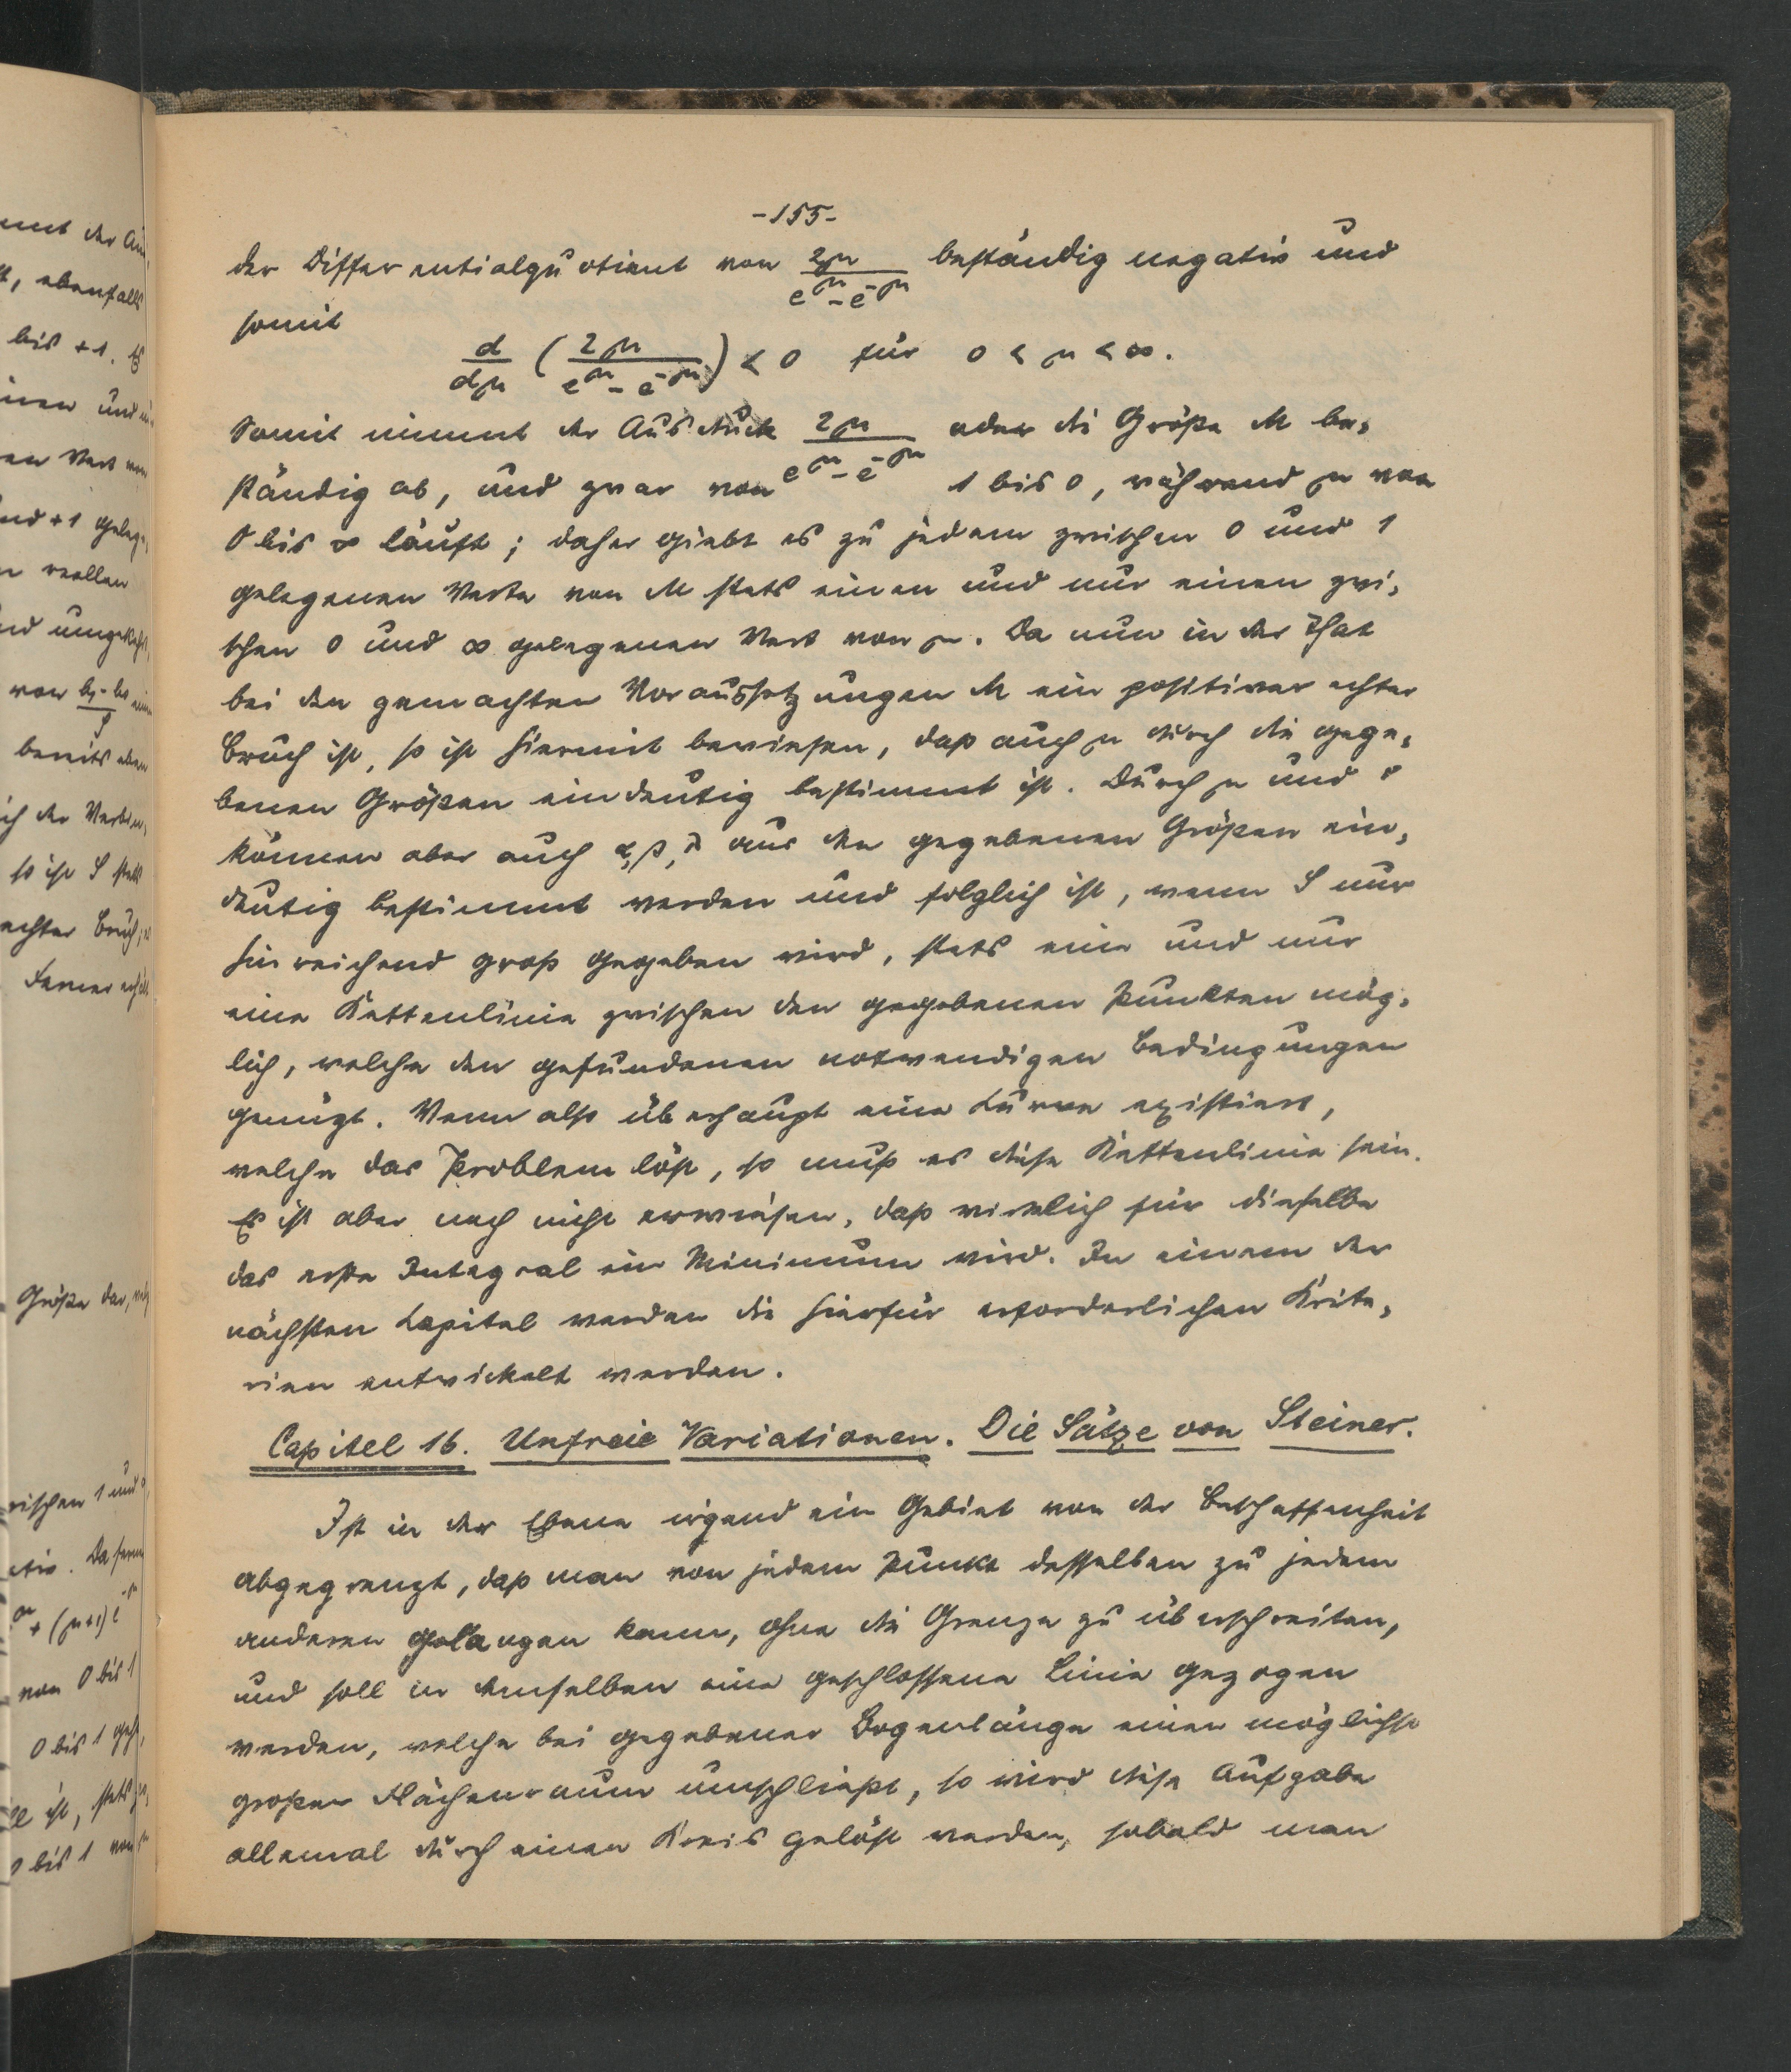 -155-
der Differentialquotient von 2μ/(e^μ - e^-μ) beständig negativ und
somit
d/dμ (2μ/(e^μ - e^-μ)) < 0 für 0 < μ < ∞.
Somit nimmt der Ausdruck 2μ/(e^μ - e^-μ) oder die Größe M be-
ständig ab, und zwar von 1 bis 0, während μ von
0 bis ∞ läuft; daher giebt es zu jedem zwischen 0 und 1
gelegenen Werte von M stets einen und nur einen zwi-
schen 0 und ∞ gelegenen Wert von μ. Da nun in der That
bei den gemachten Voraussetzungen M ein positiver echter
Bruch ist, so ist hiermit bewiesen, daß auch μ durch die gege-
benen Größen eindeutig bestimmt ist. Durch μ und ν
können aber auch α, β, λ aus den gegebenen Größen ein-
deutig bestimmt werden und folglich ist, wenn S nur
hinreichend groß gegeben wird, stets eine und nur
eine Kettenlinie zwischen den gegebenen Punkten mög-
lich, welche den gefundenen notwendigen Bedingungen
genügt. Wenn also überhaupt eine Curve existiert,
welche das Problem löst, so muß es diese Kettenlinie sein.
Es ist aber noch nicht erwiesen, daß wirklich für dieselbe
das erste Integral ein Minimum wird. In einem der
nächsten Capitel werden die hierfür erforderlichen Krite-
rien entwickelt werden.
Capitel 16. Unfreie Variationen. Die Sätze von Steiner.
Ist in der Ebene irgend ein Gebiet von der Beschaffenheit
abgegrenzt, daß man von jedem Punkt desselben zu jedem
anderen gelangen kann, ohne die Grenze zu überschreiten,
und soll in demselben eine geschlossene Linie gezogen
werden, welche bei gegebener Bogenlänge einen möglichst
großen Flächenraum umschließt, so wird diese Aufgabe
allemal durch einen Kreis gelöst werden, sobald man